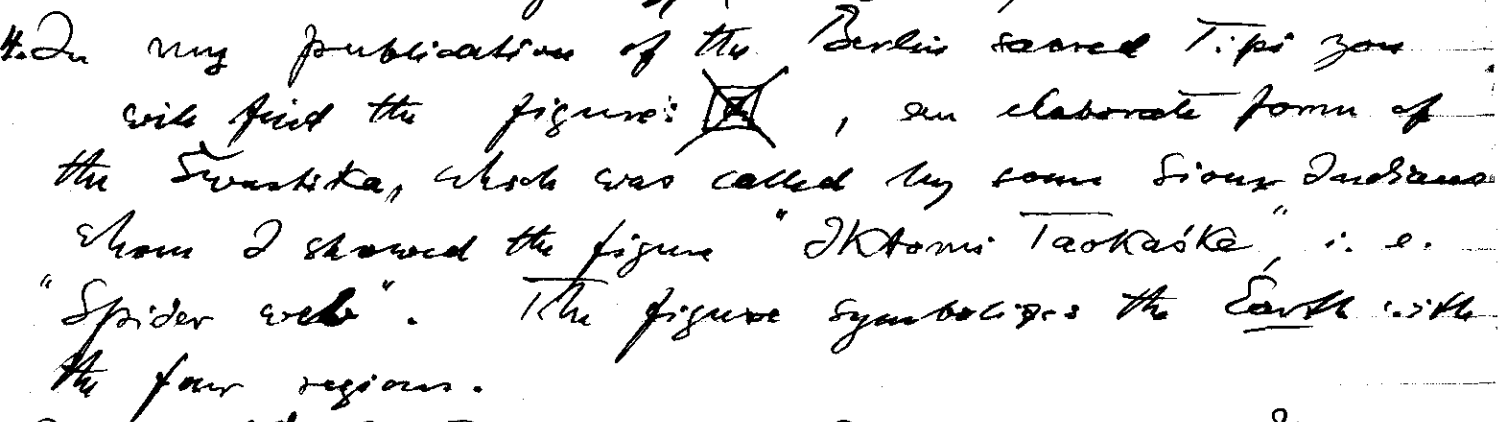 4. In my publication of the Berlin sacred Tipi you
will find the figure: , an elaborate form of
the Swastika, which was called by some Sioux Indians
whom I showed the figure "Iktomi Taokaśke", i. e.
"Spider web". The figure symbolizes the Earth with
the four regions.